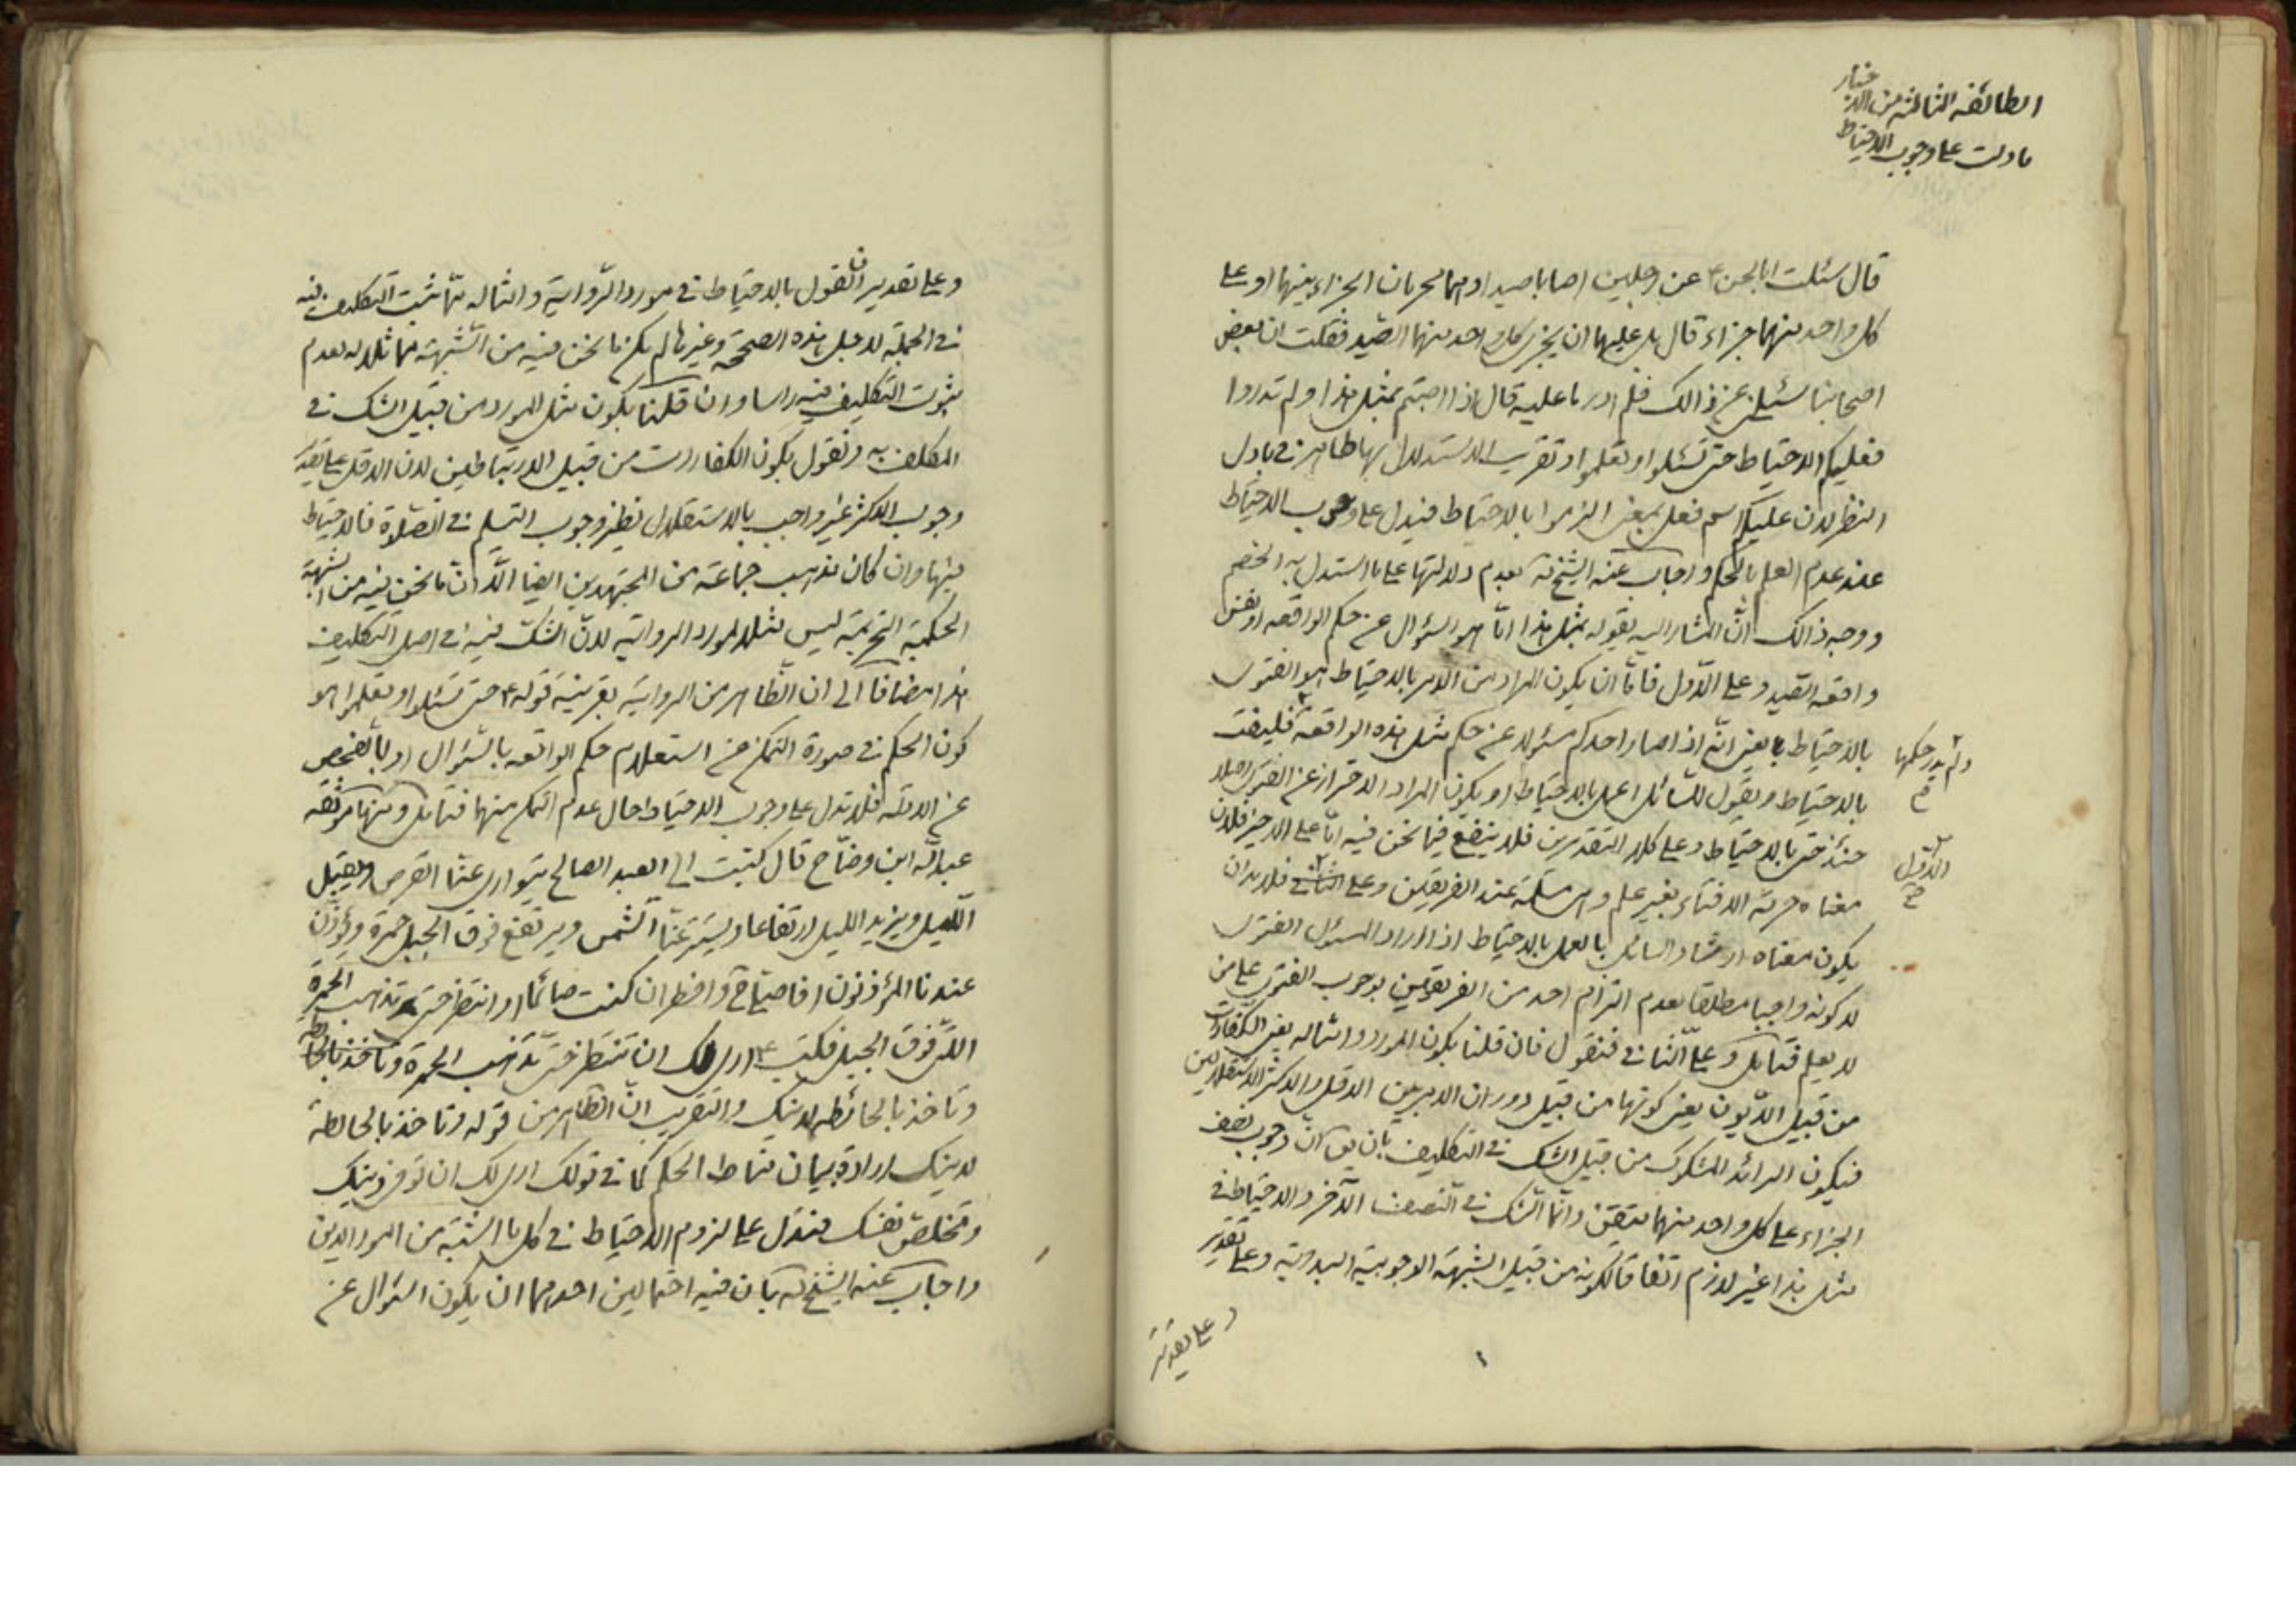 الطائفه الثالثه من الاخبار
ما دلت على وجوب الاحتياط
قال سئلت ابا الحسن ع عن رجلين اصابا صيدا وهما محرمان الجزاء بينهما او على
كل واحد منهما جزاء قال بل عليهما ان يجزى كل واحد منهما الصّيد فقلت ان بعض
اصحابنا سئلنى عن ذالك فلم ادر ما عليه قال اذا اصبتم بمثل هذا ولم تدروا
فعليكم الاحتياط حتى تسئلوا وتعلموا وتقريب الاستدلال بها ظاهر فى بادى
النظر لان عليكم اسم فعل بمعنى الزموا بالاحتياط فيدل على وجوب الاحتياط
عند عدم العلم بالحكم واجاب عنه الشيخ ره بعدم دلالتها على ما استدل به الخصم
ووجه ذالك انّ المشار اليه بقوله بمثل هذا امّا هو السؤال عن حكم الواقعه او نفس
واقعه الصّيد وعلى الاوّل فامّا ان يكون المراد من الامر بالاحتياط هو الفتوى
بالاحتياط بمعنى انّه اذا صار احدكم مسئولا عن حكم مثل هذه الواقعة فليفت
ولم يدر حكمها
بالاحتياط ويقول للسّائل اعمل بالاحتياط او يكون المراد الاحتراز عن الفتوى اصلا
حتى بالاحتياط وعلى كلا التقديرين فلا ينفع فيما نحن فيه امّا على الاخير فلان
معناه حرمة الافتاء بغير علم وهى مسلّمة عند الفريقين وعلى فلا بد ان
الاوّل
يكون معناه ارشاد السائل بالعمل بالاحتياط اذا اراد المسئول الفتوى
لا كونه واجبا مطلقا بعدم التزام احد من الفريقين بوجوب الفتوى على من
لا يعلم فتامل وعلى الثّانى فنقول فان قلنا بكون المورد وامثاله يعنى الكفارات
من قبيل الدّيون يعنى كونها من قبيل دوران الامر بين الاقل والاكثر الاستقلاليين
فيكون الزائد المشكوك من قبيل الشك فى التكليف بان يق انّ وجوب نصف
الجزاء على كل واحد منهما متيقن وانّما الشك فى النصف الآخر والاحتياط فى
مثل هذا غير لازم اتفاقا لكونه من قبيل الشبهة الوجوبية البدوية وعلى تقدير
وعلى تقدير
وعلى تقدير القول بالاحتياط فى مورد الرّواية وامثاله ممّا ثبت التكليف فيه
فى الجملة لاجل هذه الصحيحة وغيرها لم يكن ما نحن فيه من الشّبهة مماثلا له بعدم
ثبوت التكليف فيه راسا وان قلنا بكون مثل المورد من قبيل الشك فى
المكلف به ونقول بكون الكفارات من قبيل الارتباطيين لان الاقل على تقدير
وجوب الاكثر غير واجب بالاستقلال نظير وجوب التسليم فى الصّلوة فالاحتياط
فيها وان كان مذهب جماعة من المجتهدين ايضا الّا انّ ما نحن فيه من الشبهة
الحكمية التحريمية ليس مثلا لمورد الرواية لانّ الشكّ فيه فى اصل التكليف
هذا مضافا الى ان الظّاهر من الرواية بقرينة قوله ع حتى تسئلوا وتعلموا هو
كون الحكم فى صورة التمكن من استعلام حكم الواقعه بالسّؤال او بالفحص
عن الادلّه فلا تدل على وجوب الاحتياط حال عدم التمكن منهما فتامل ومنها موثقه
عبد اللّه ابن وضّاح قال كتبت الى العبد الصالح يتوارى عنّا القرص ويقبل
اللّيل ويزيد الليل ارتفاعا ويستر عنّا الشّمس ويرتفع فوق الجبل حمرة ويؤذّن
عندنا المؤذنون افاصلّى ح وافطر ان كنت صائما او انتظر حتى تذهب الحمرة
الّتى فوق الجبل فكتب ع ارى لك ان تنتظر حتى تذهب الحمرة وتاخذ بالحائطة
وتاخذ بالحائطه لدينك والتقريب انّ الظّاهر من قوله وتاخذ بالحائطة
لدينك ارادة بيان مناط الحكم كما فى قولك ارى لك ان توفى دينك
وتخلص نفسك فتدل على لزوم الاحتياط فى كل ما اشتبه من امور الدين
واجاب عنه الشيخ ره بان فيه احتمالين احدهما ان يكون السؤال عن